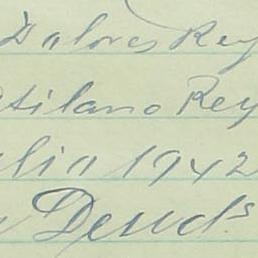 Dolores Rey
Atilano Rey
ulio 1942
Deud.s